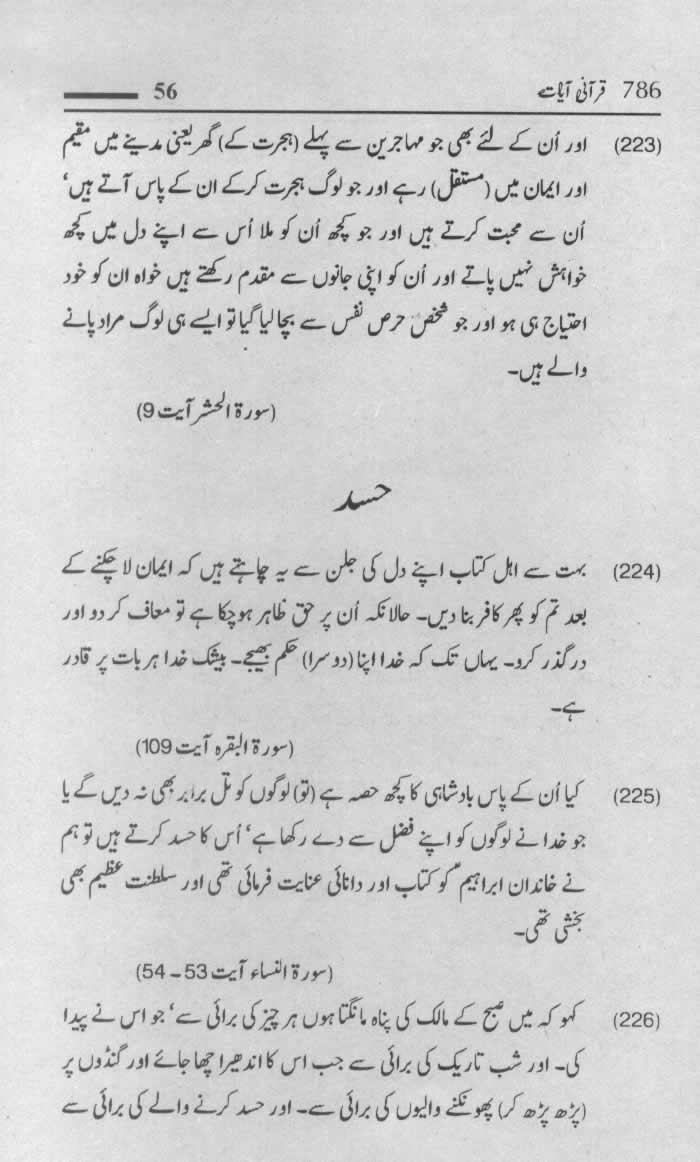 786 قرآنی آیات 56
(223) اور اُن کے لئے بھی جو مہاجرین سے پہلے (ہجرت کے) گھر یعنی مدینے میں مقیم
اور ایمان میں (مستقل) رہے اور جو لوگ ہجرت کرکے ان کے پاس آتے ہیں‘
اُن سے محبت کرتے ہیں اور جو کچھ اُن کو ملا اُس سے اپنے دل میں کچھ
خواہش نہیں پاتے اور اُن کو اپنی جانوں سے مقدم رکھتے ہیں خواہ ان کو خود
احتیاج ہی ہو اور جو شخص حرص نفس سے بچا لیا گیا تو ایسے ہی لوگ مراد پانے
والے ہیں۔
(سورۃ الحشر آیت 9)
حسد
(224) بہت سے اھل کتاب اپنے دل کی جلن سے یہ چاہتے ہیں کہ ایمان لا چکنے کے
بعد تم کو پھر کافر بنا دیں۔ حالانکہ اُن پر حق ظاہر ہوچکا ہے تو معاف کر دو اور
درگذر کرو۔ یہاں تک کہ خدا اپنا (دوسرا) حکم بھیجے۔ بیشک خدا ہر بات پر قادر
ہے۔
(سورۃ البقرہ آیت 109)
(225) کیا اُن کے پاس بادشاہی کا کچھ حصہ ہے (تو) لوگوں کو تل برابر بھی نہ دیں گے یا
جو خدا نے لوگوں کو اپنے فضل سے دے رکھا ہے‘ اُس کا حسد کرتے ہیں تو ہم
نے خاندان ابراہیمؑ کو کتاب اور دانائی عنایت فرمائی تھی اور سلطنت عظیم بھی
بخشی تھی۔
(سورۃ النساء آیت 53 – 54)
(226) کہو کہ میں صبح کے مالک کی پناہ مانگتا ہوں ہر چیز کی برائی سے‘ جو اس نے پیدا
کی۔ اور شب تاریک کی برائی سے جب اس کا اندھیرا چھا جائے اور گنڈوں پر
(پڑھ پڑھ کر) پھونکنے والیوں کی برائی سے۔ اور حسد کرنے والے کی برائی سے